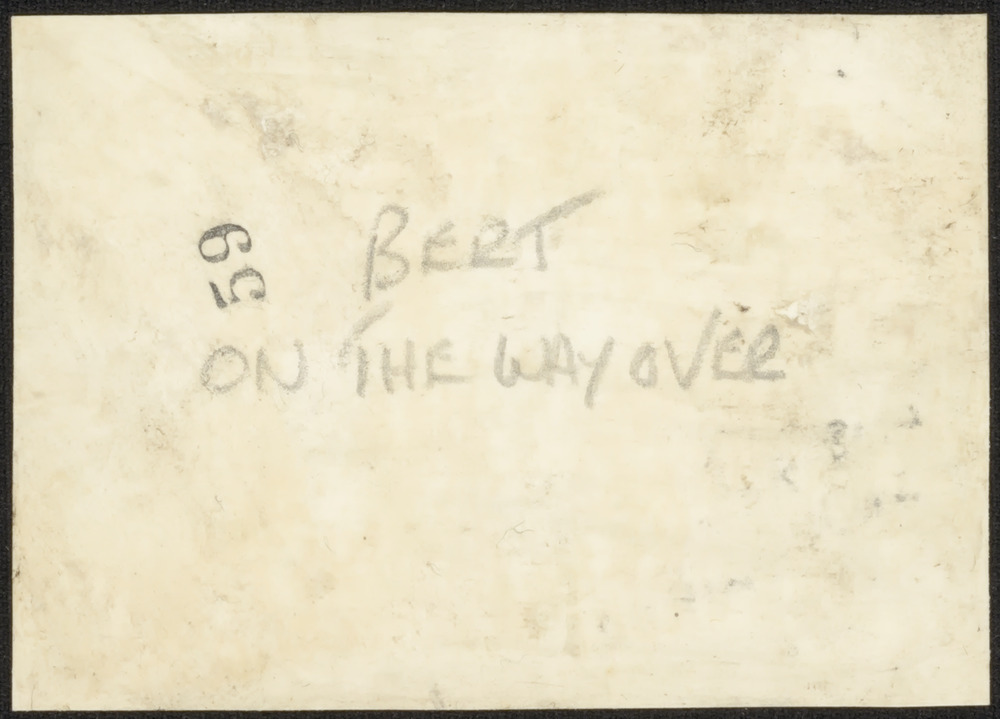 59
BERT
ON THE WAY OVER